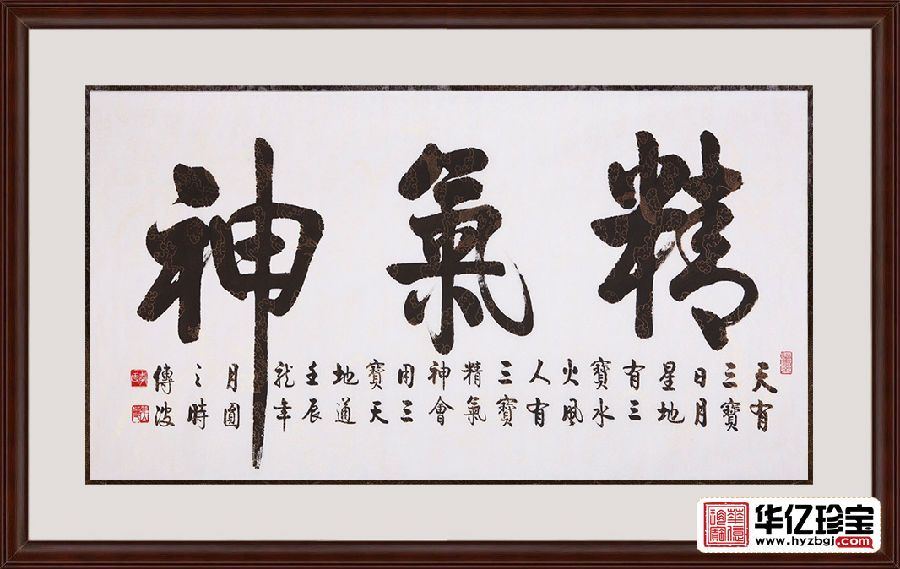 精氣神
天有
三寶
日月
星地
有三
寶水
火風
人有
三寶
精氣
神會
用三
寶天
地道
壬辰
龙年
月圆
之時
傳波
华亿珍宝
www.hyzbgj.com